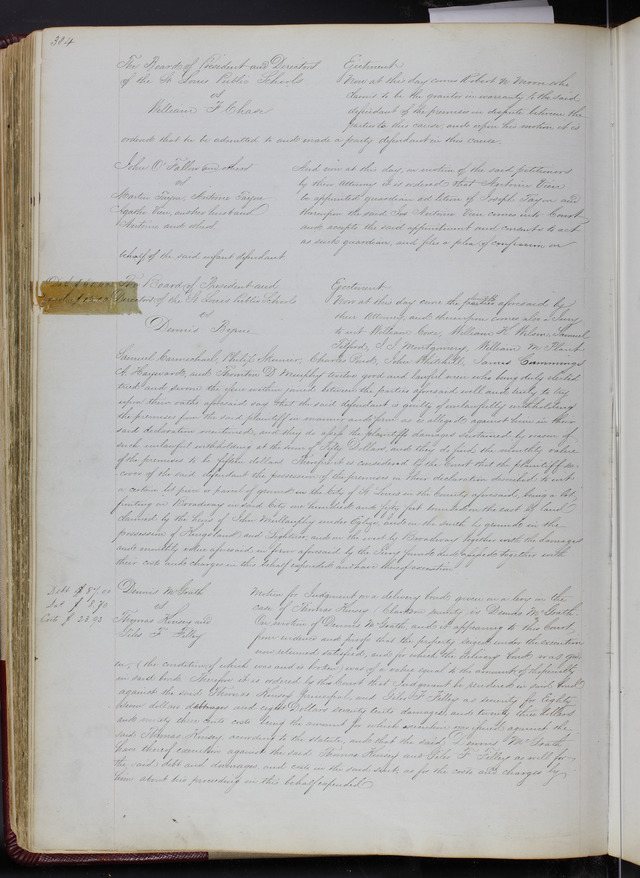 304
The Board of President and Directors
of the St Louis Public Schools
vs
William F Chase
Ejectment
Now at this day comes Robert M Moore who
claims to be the grantor in warranty to the said
defendant of the premises in dispute between the
parties to this cause, and upon his motion it is
ordered that he be admitted to and made a party defendant in this cause.
John O Fallon and others
vs
Martin Tayon, Antoine Tayon
Agathe Vien, and her husband
Antoine and others
And now at this day, on motion of the said petitioners
by their Attorney it is ordered that Antoine Vien
be appointed guardian ad litem of Joseph Tayon and
thereupon the said Antoine Vien comes into Court
and accepts the said appointment and consents to act
as such guardian, and files a plea of confession on
behalf of the said infant defendant
The Board of President and
Directors of the St Louis Public Schools
vs
Dennis Ryan
Ejectment
Now at this day come the parties aforesaid by
their Attorneys and thereupon comes also a Jury
to wit William Coze, William H Wilson, Samuel
Telford, J J Montgomery, William M Plant
Samuel Carmichael, Philip Skinner, Charles Peck, John Whitehill, James Cummings
and Thornton D Murphy twelve good and lawful men who being duly elected
tried and sworn the issue within joined between the parties aforesaid well and truly to try
upon their oaths aforesaid say that the said defendant is guilty of unlawfully withholding
the premises from the said plaintiff in manner and form as is alleged against him in their
said declaration mentioned, and they do assess the plaintiffs damages sustained by reason of
such unlawful withholding at the sum of Fifty Dollars, and they do find the monthly value
of the premises to be fifteen dollars Therefore it is considered by the Court that the plaintiff re-
cover of the said defendant the possession of the premises in their declaration described to wit
a certain lot piece or parcel of ground in the City of St Louis in the County aforesaid, being a lot
fronting on Broadway in said City one hundred and fifty feet bounded on the east by land
claimed by the heirs of John Mullanphy and on the south by grounds in the
possession of and on the west by Broadway together with the damages
and monthly value aforesaid in form aforesaid by the Jury found and assessed together with
their costs and charges in this behalf expended and have thereof execution
Debt $ 87.00
Dat $ 8.70
Costs $ 23.93
Dennis McGrath
vs
Thomas Kinsey and
Giles F Filley
Motion for Judgment on a delivery bond given on a levy in the
case of Thomas Kinsey vs Dennis McGrath
On motion of Dennis McGrath and it appearing to this Court,
from evidence and proof that the property levied under the execution
now returned satisfied, and for which the delivery bond was giv-
en, (the condition of which was and is broken) was of a value equal to the amount of the penalty
in said bond. Therefore it is ordered by this Court that Judgment be rendered in said bond
against the said Thomas Kinsey principal, and Giles F Filley as security for Eighty
seven dollars damages and eight Dollars seventy cents damages and twenty three dollars
and ninety three cents costs being the amount for which execution was issued against the
said Thomas Kinsey according to the statute, and that the said Dennis McGrath
have thereof execution against the said Thomas Kinsey and Giles F Filley as well for
the said debt and damages and costs in the said suit, as for the costs and charges by
him about his proceeding in this behalf expended